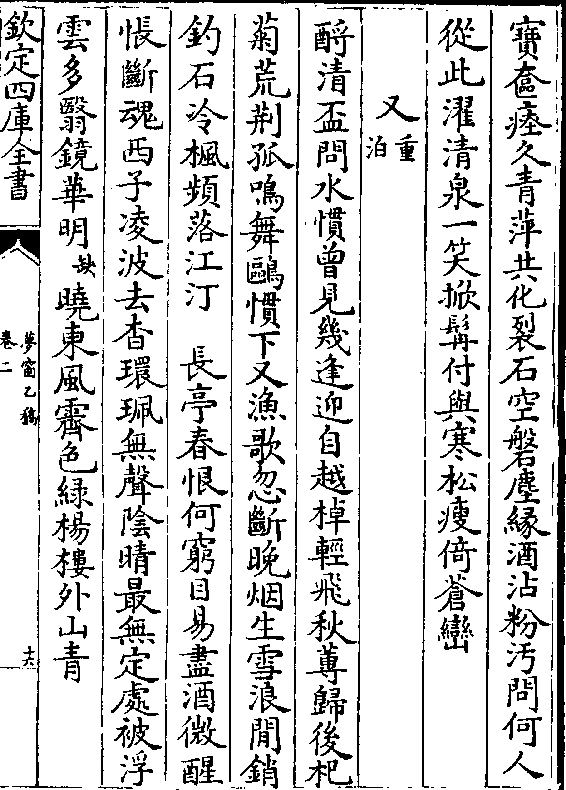 寶奩塵久青萍共化裂石空磐塵緣酒沾粉汚問何人
從此濯清泉一笑掀髯付與寒松瘦倚蒼巒
又重泊
酹清盃問水慣曾見幾逢迎自越棹輕飛秋蓴歸後杞
菊荒荆孤鳴舞鷗慣下又漁歌忽斷晚烟生雪浪閒銷
釣石冷楓頻落江汀　長亭春恨何窮目易盡酒微醒
悵斷魂西子凌波去杳環珮無聲陰晴最無定處被浮
雲多翳鏡華明缺曉東風霽色緑楊樓外山青
欽定四庫全書
夢窗乙稿
卷二
十六